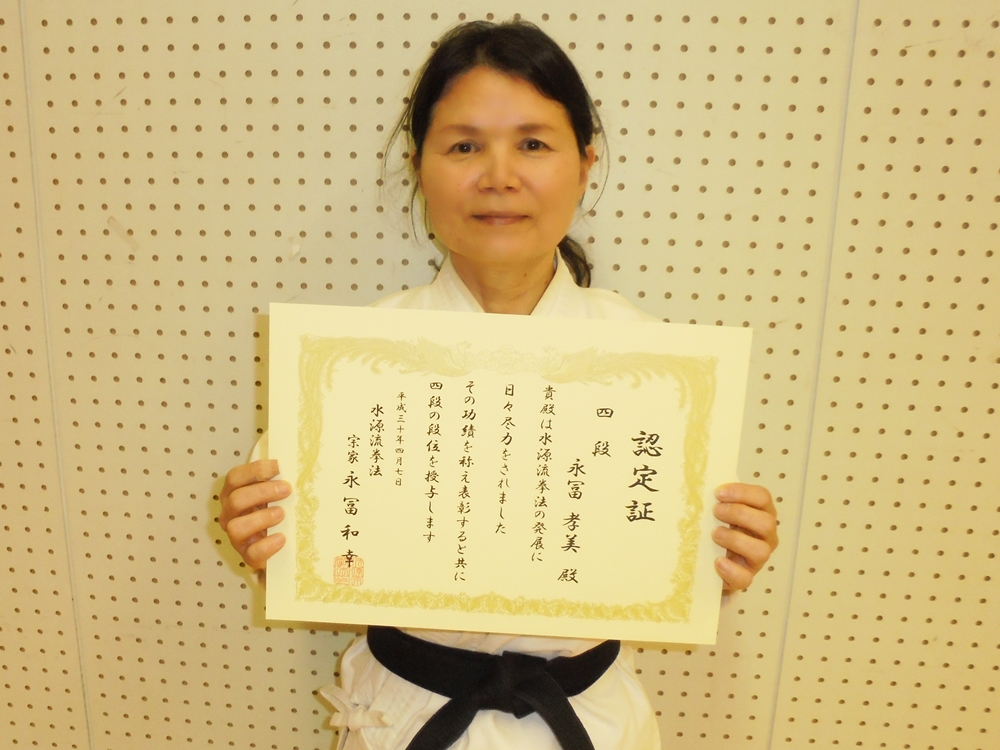 認定証
四段
永冨孝美殿
貴殿は水源流拳法の発展に
日々尽力をされました
その功績を称え表彰すると共に
四段の段位を授与します
平成三十年四月七日
水源流拳法
宗家 永冨和幸